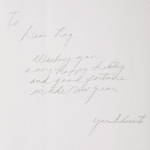 To
Dear Ray
Wishing you
a very happy holiday
and good fortune
in the New year